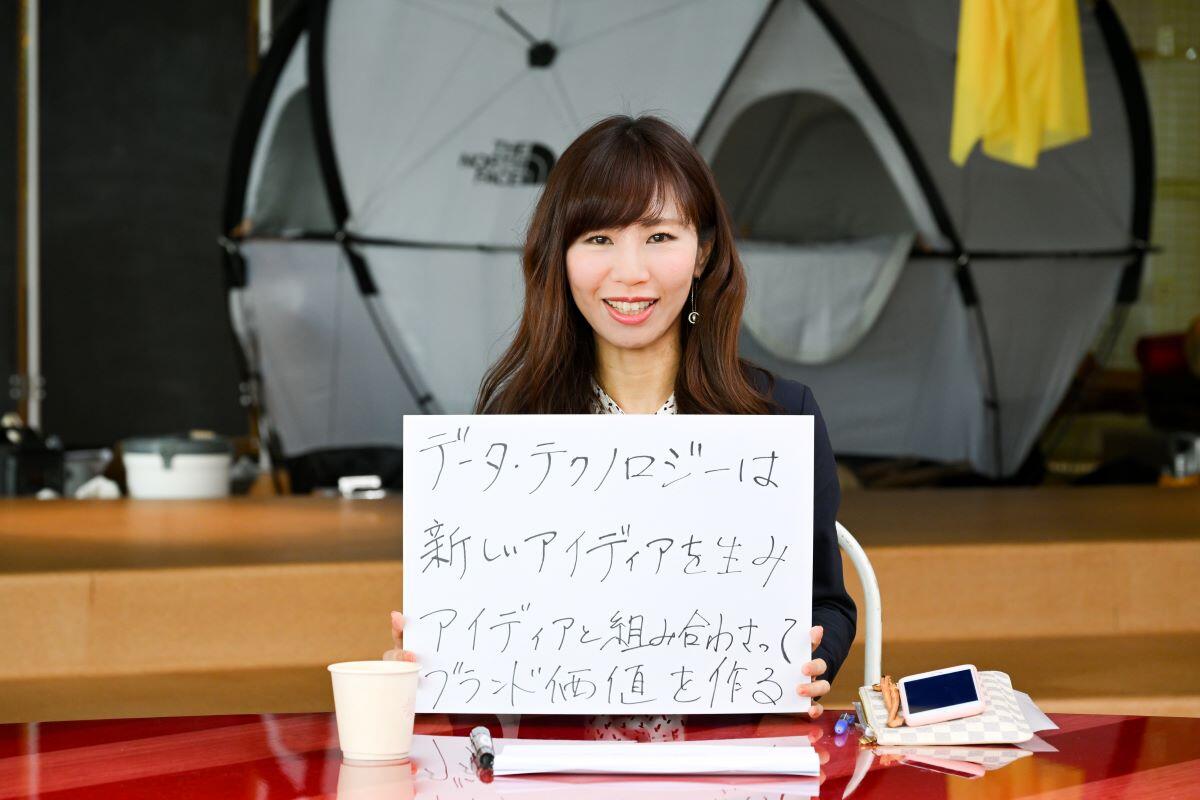 THE
NORTH
FACE
データ・テクノロジーは
新しいアイディアを生み
アイディアと組み合わさって
ブランド価値を作る